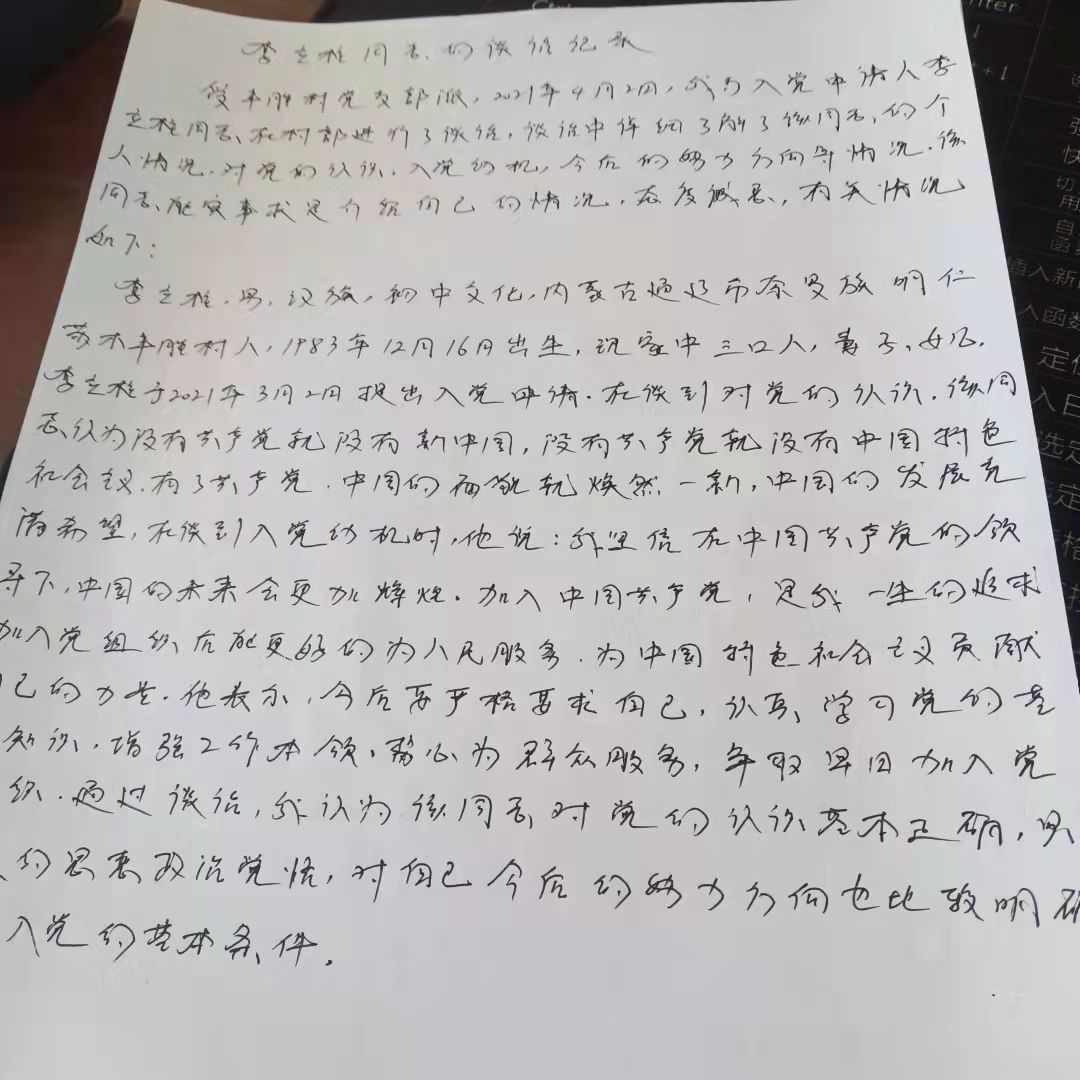 李立柱同志的谈话记录
受丰胜村党支部派，2021年4月2日，我与入党申请人李
立柱同志在村部进行了谈话，谈话中详细了解了该同志的个
人情况，对党的认识，入党动机，今后的努力方向等情况，该
同志能实事求是介绍自己的情况，态度诚恳，有关情况
如下：
李立柱，男，汉族，初中文化，内蒙古通辽市奈曼旗明仁
苏木丰胜村人，1983年12月16日出生，现家中三口人，妻子，女儿，
李立柱于2021年3月2日提出入党申请。在谈到对党的认识，该同
志认为没有共产党就没有新中国，没有共产党就没有中国特色
社会主义，有了共产党，中国的面貌就焕然一新，中国的发展充
满希望，在谈到入党动机时，他说：我坚信在中国共产党的领
导下，中国的未来会更加辉煌。加入中国共产党，是我一生的追求
加入党组织后能更好的为人民服务，为中国特色社会主义贡献
己的力量。他表示，今后要严格要求自己，认真学习党的基
知识，增强工作本领，热心为群众服务，争取早日加入党
织。通过谈话，我认为该同志对党的认识基本正确，具
的思想政治觉悟，对自己今后的努力方向也比较明确
入党的基本条件。
切
用
自
函
插入新
入函数
定位
入日
选定
定
格